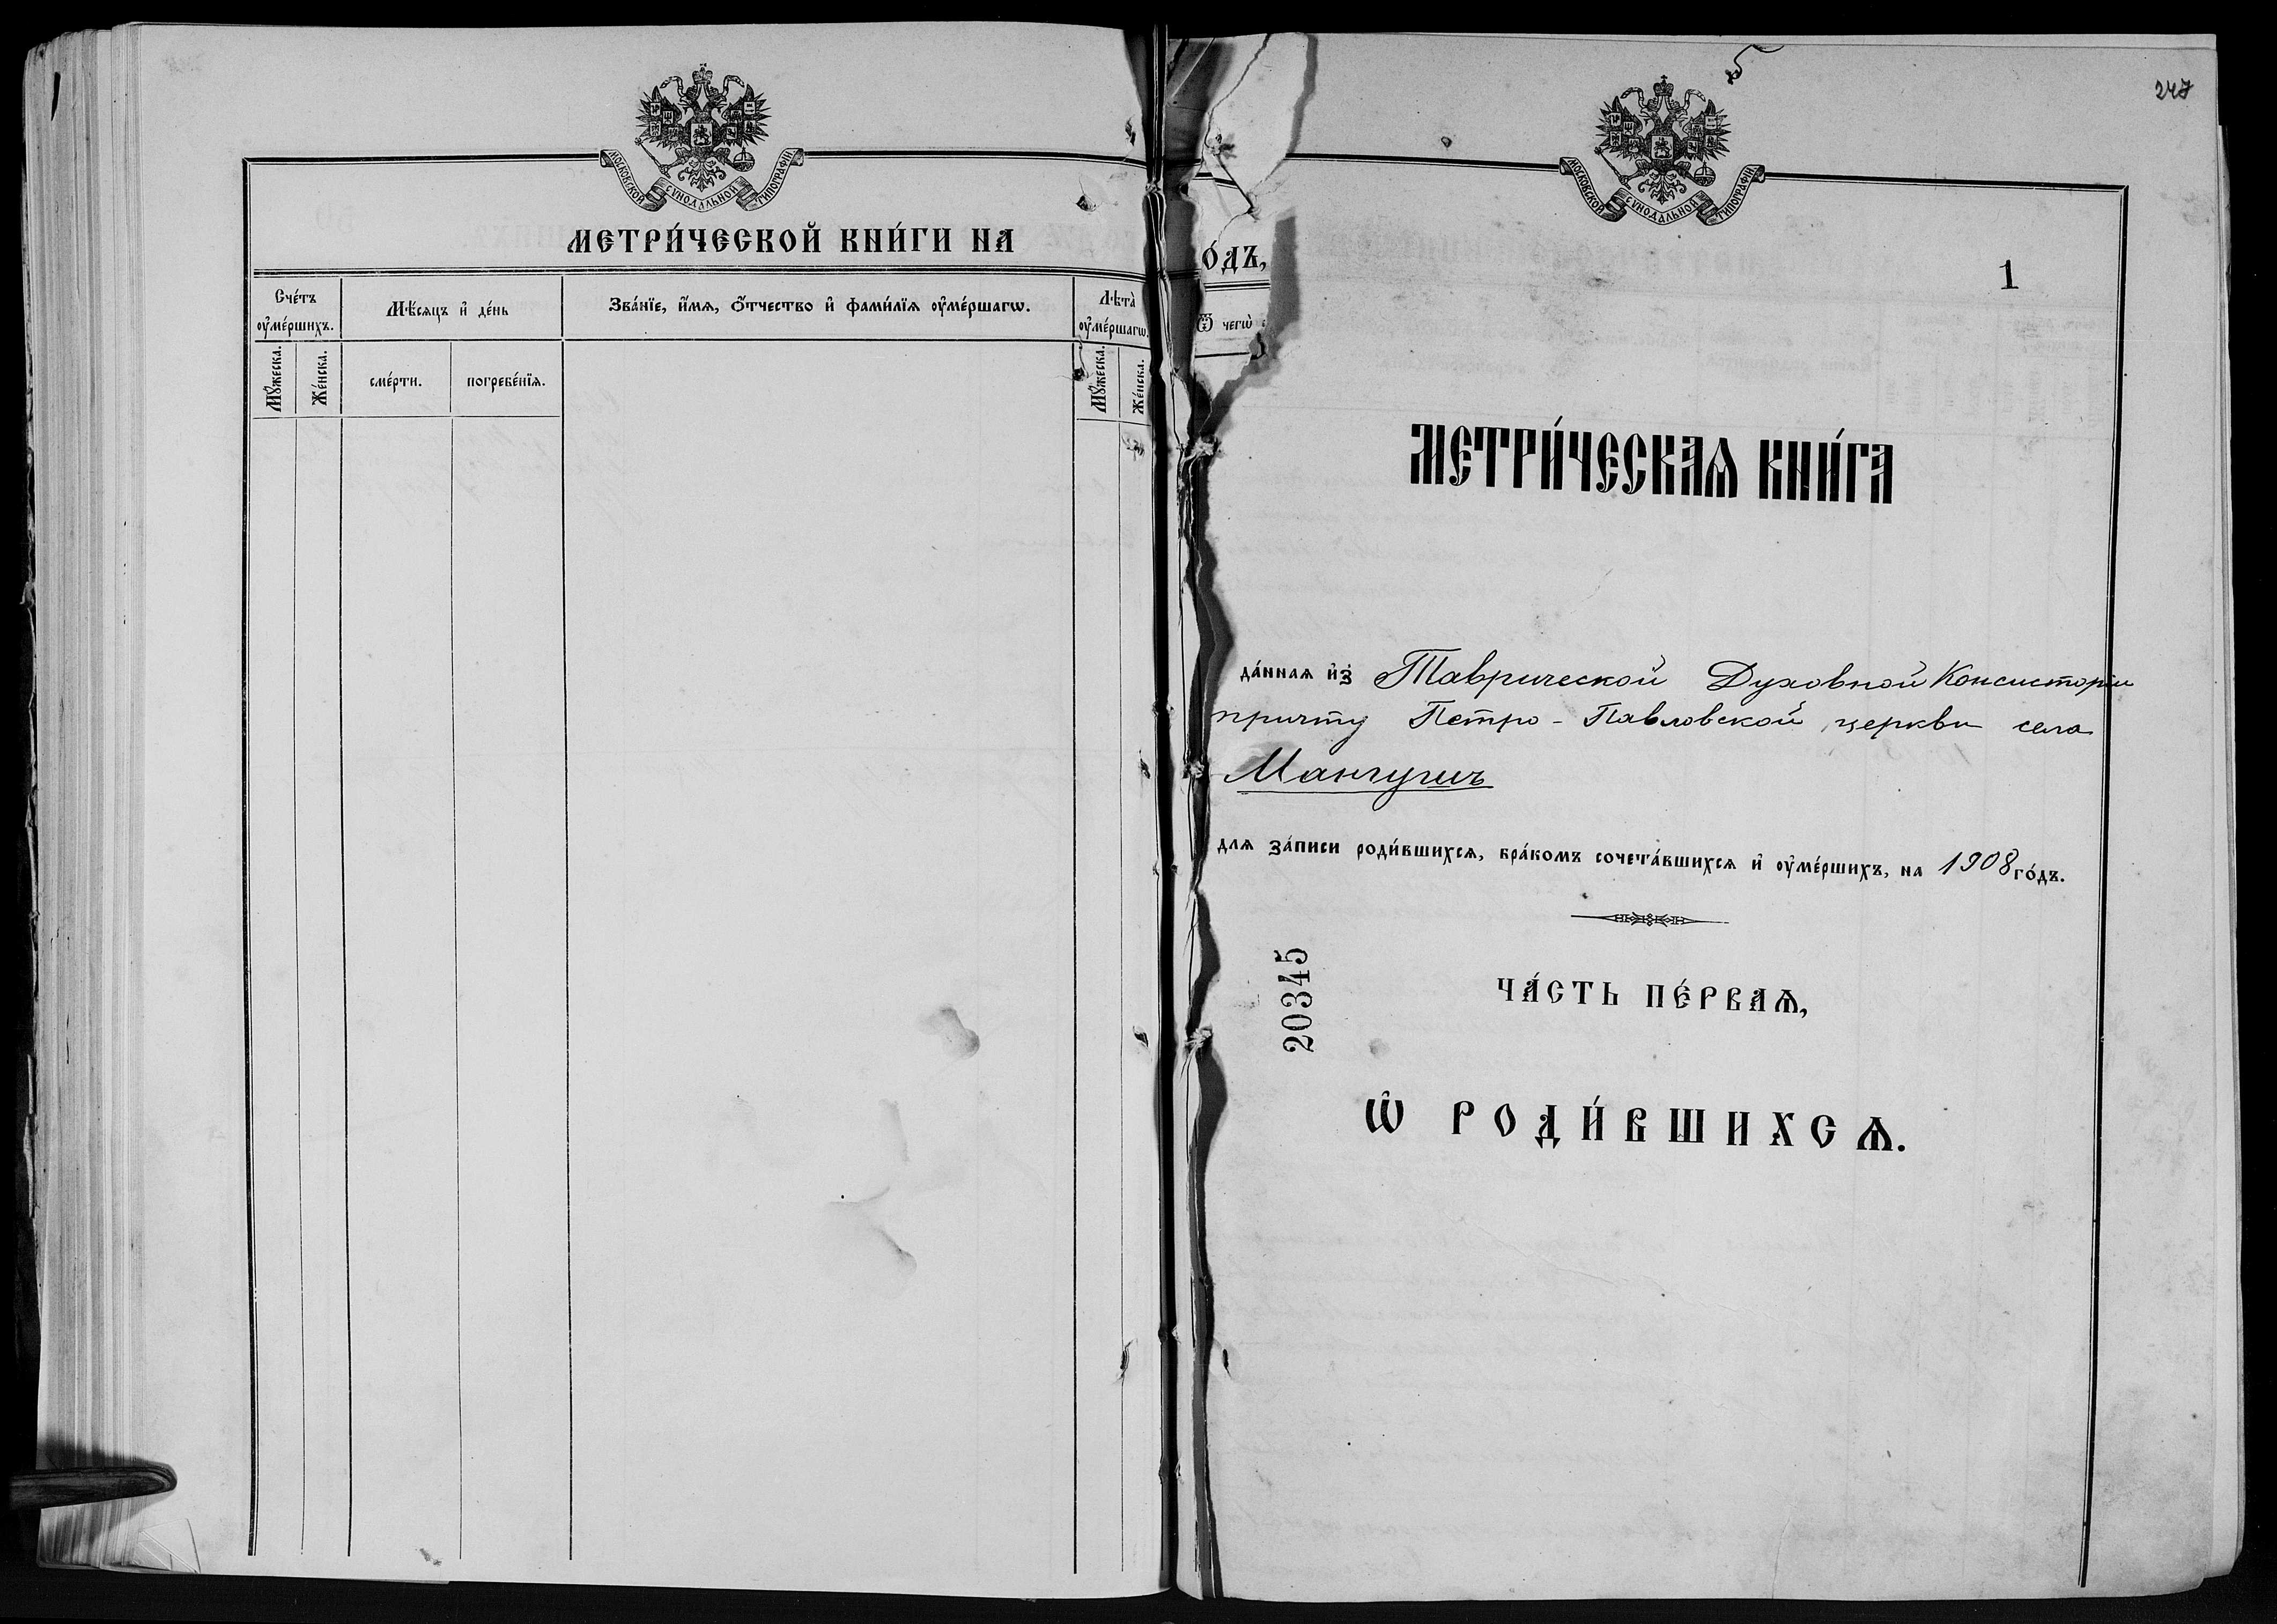 МОСКОВСКОЙ СѴНОДАЛЬНОЙ ТИПОГРАФІИ
МЕТРИ́ЧЕСКОЙ КНИ́ГИ НА
Сче́тъ ᲂу҆ме́ршихъ.
Мѣ́сяцъ и҆ де́нь
Зва́нїе, и҆́мѧ, ѻ҆́тчество и҆ фами́лїѧ ᲂу҆ме́ршагѡ.
Лѣта̀ ᲂу҆ме́ршагѡ.
Мꙋ́жеска.
Же́нска.
сме́рти.
погребе́нїѧ.
Мꙋ́жеска.
Же́нска.
о́дъ,
Ѿ чегѡ̀
247
МОСКОВСКОЙ СѴНОДАЛЬНОЙ ТИПОГРАФІИ
1
МЕТРИ́ЧЕСКАѦ КНИ́ГА
да́ннаѧ и҆з̾ Таврической Духовной Консисторіи
причту Петро-Павловской церкви села
Мангушъ
для за́писи роди́вшихсѧ, бра́комъ сочета́вшихсѧ и҆ ᲂу҆ме́ршихъ, на 1908 го́дъ.
20345
ЧА́СТЬ ПЕ́РВАѦ,
Ѡ҆ РОДИ́ВШИХСѦ.